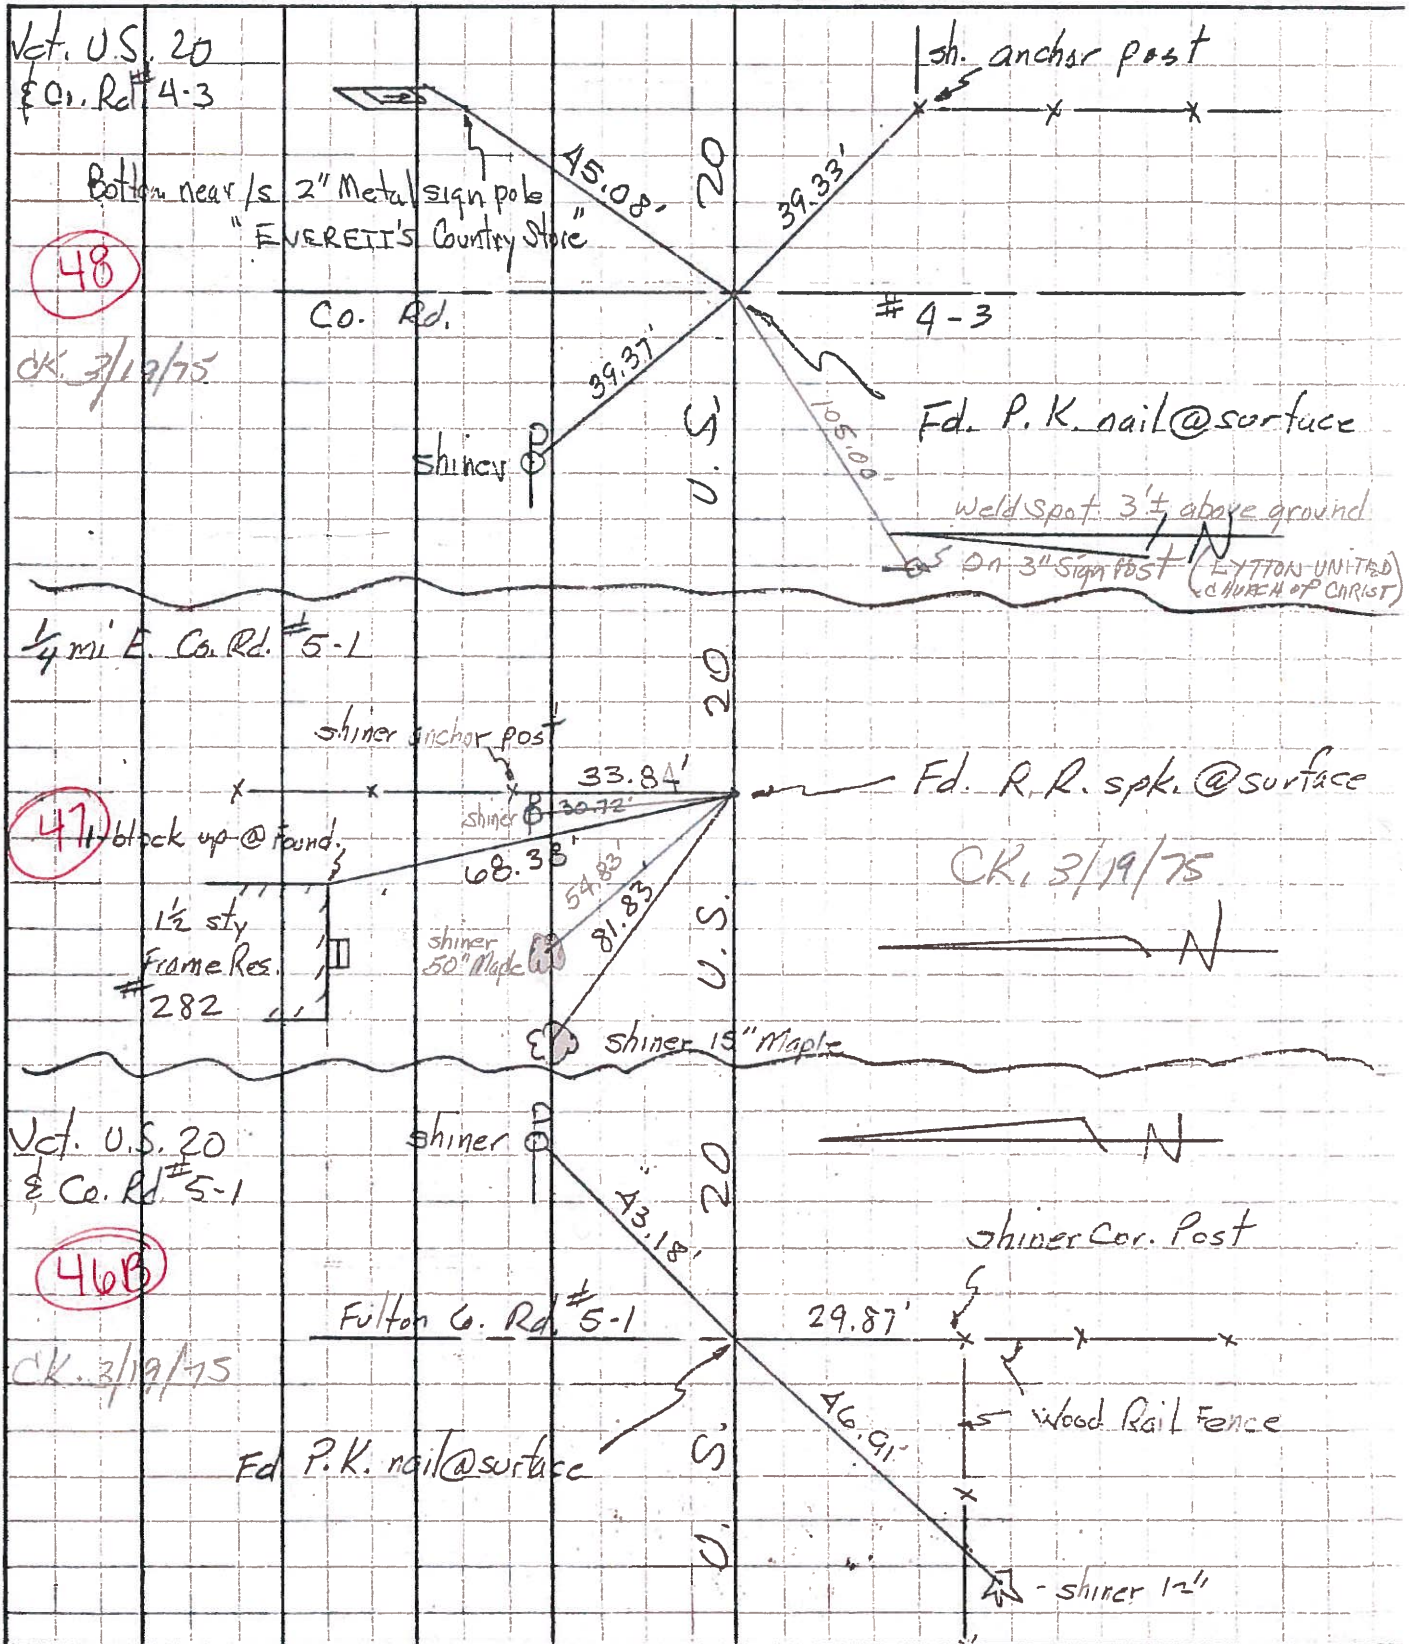 Jct. U.S. 20
& Co. Rd # 4-3
sh. anchor post
45.08'
20
39.33'
Bottom near /s 2" Metal sign pole
"EVERETT'S Country Store"
48
Co. Rd.
# 4-3
CK. 3/19/75
39.37'
shiner
U.S.
105.00'
Fd. P.K. nail @ surface
Weld Spot 3'± above ground
N
On 3" Sign Post (LYTTON UNITED
CHURCH OF CHRIST)
1/4 mi E. Co. Rd. # 5-1
20
shiner anchor post
33.84'
Fd. R.R. spk. @ surface
shiner
30.72'
47
1-block up @ Found.
68.33'
54.83'
81.83
CK. 3/19/75
1½ sty
Frame Res.
# 282
shiner
50" Maple
U.S.
N
shiner 15" Maple
Jct. U.S. 20
& Co. Rd # 5-1
shiner
20
N
43.18'
46B
shiner Cor. Post
Fulton Co. Rd. # 5-1
29.87'
CK. 3/19/75
46.91'
Wood Rail Fence
Fd P.K. nail @ surface
U.S.
- shiner 12"